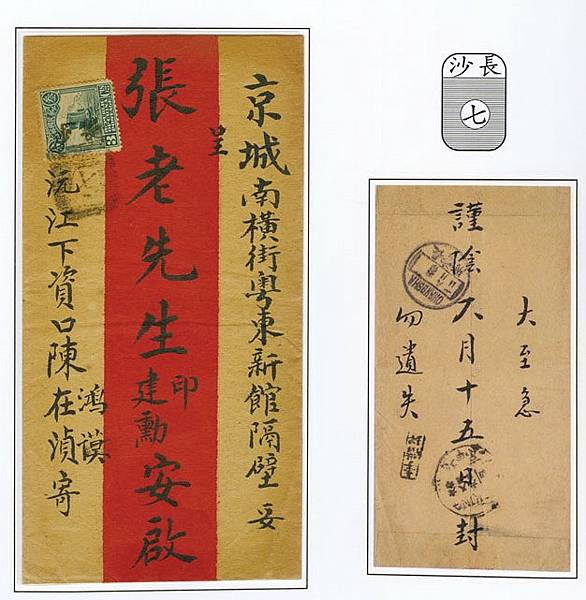 京城南橫街粵東新館隔壁 妥
呈
張老先生印建勳安啟
沅江下資口陳鴻謨在湞寄
3
長沙
七
大至急
謹陰六月十五日封
勿遺失
CHANGSHA